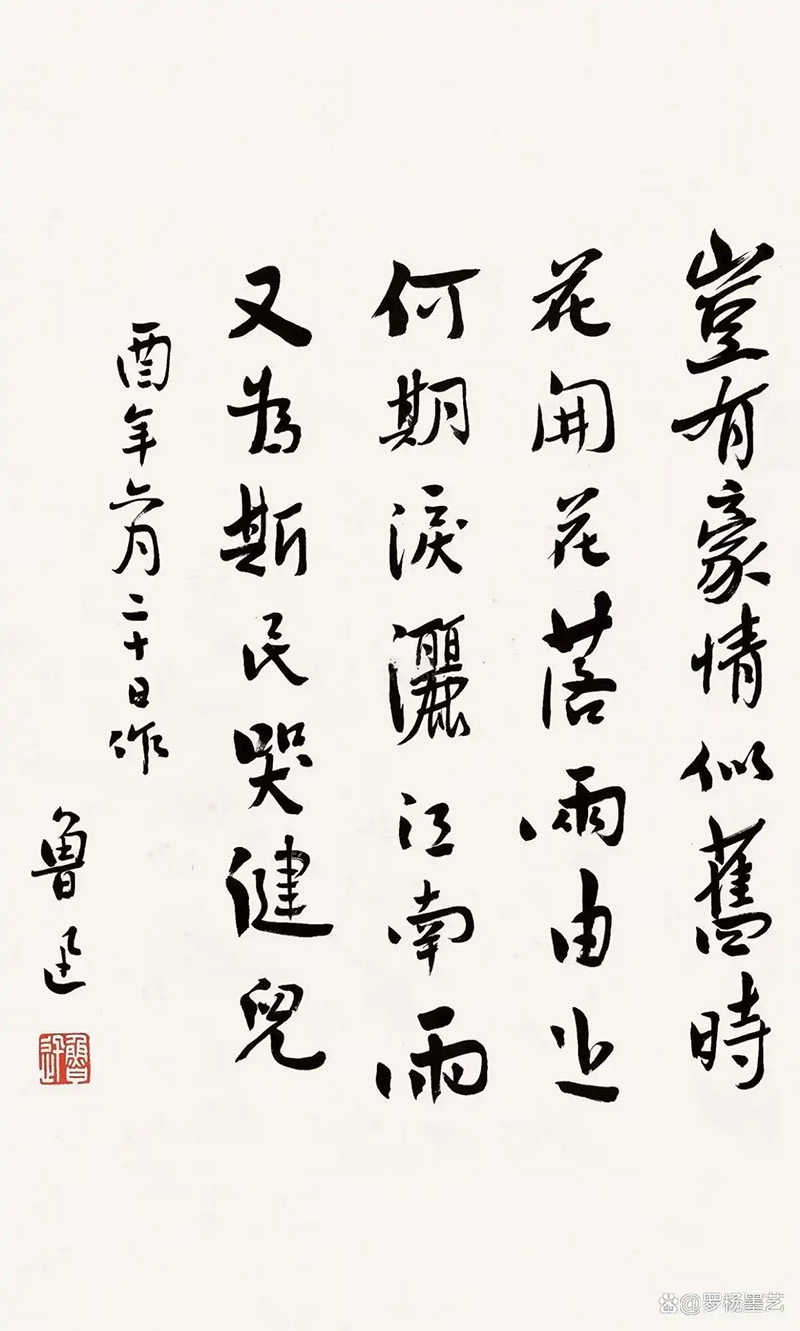 豈有豪情似舊時
花開花落兩由之
何期淚灑江南雨
又為斯民哭健兒
酉年六月二十日作
魯迅
魯迅
@罗杨墨艺